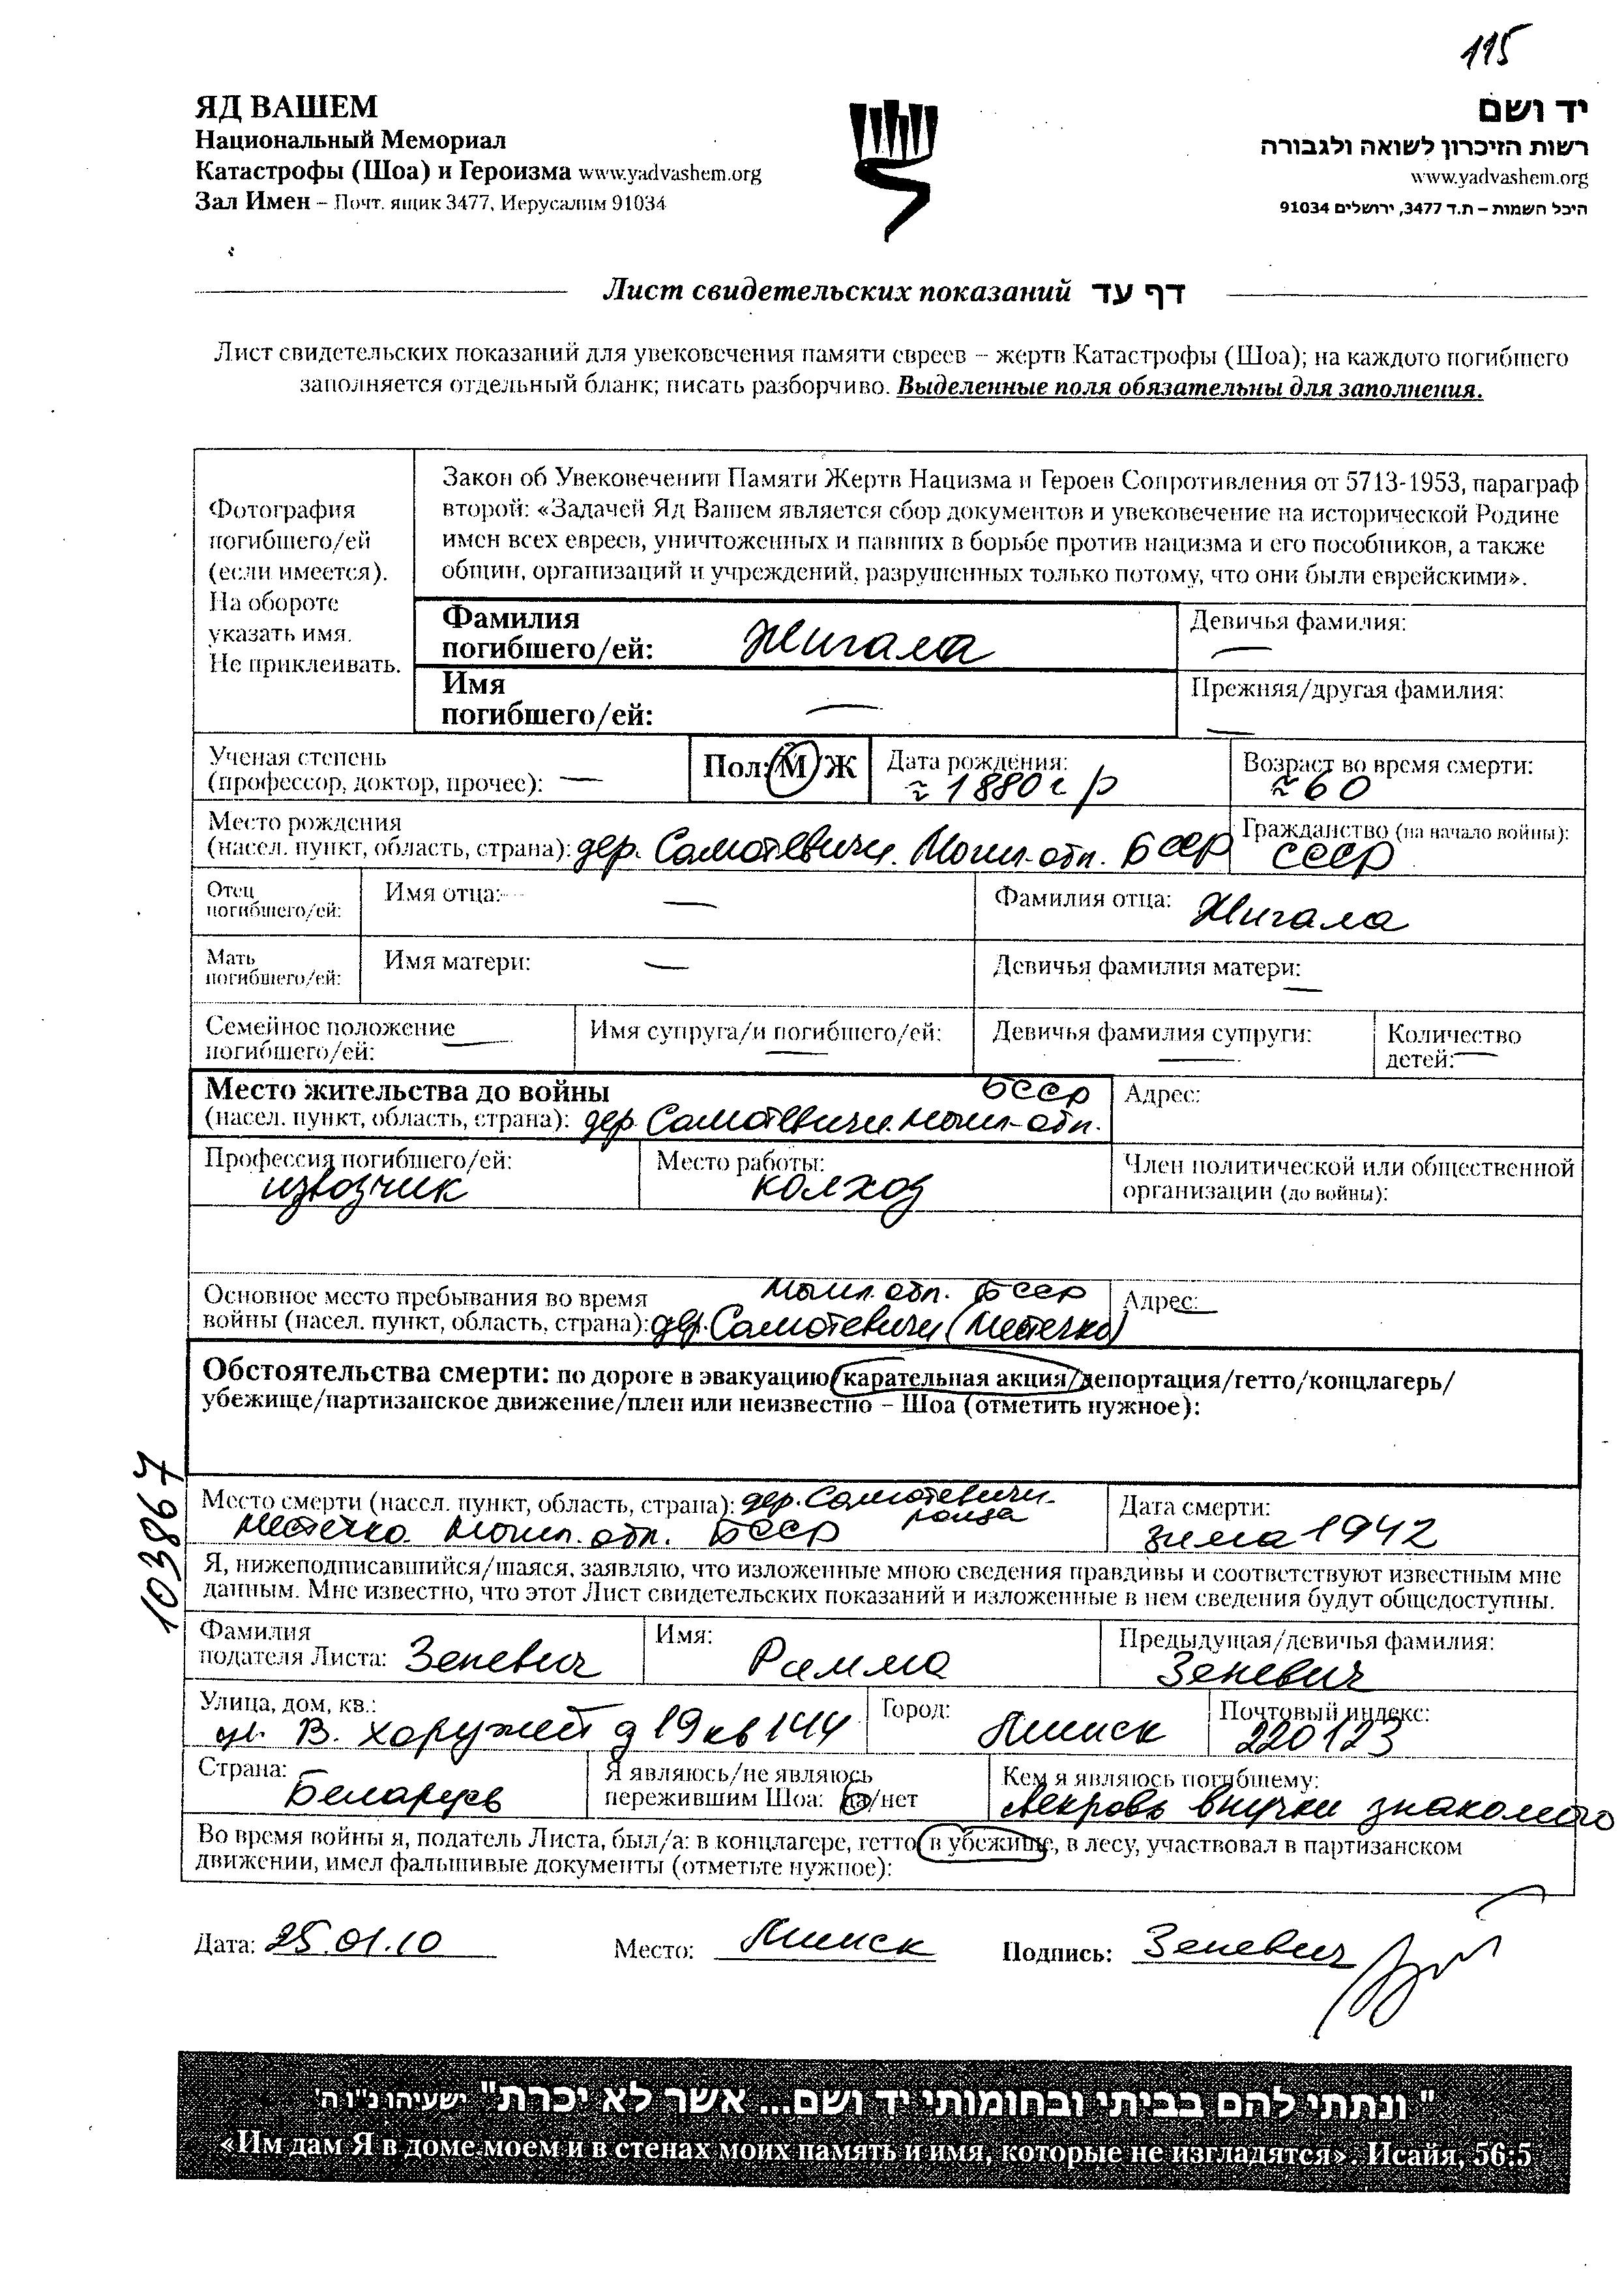 115
ЯД ВАШЕМ
Национальный Мемориал
Катастрофы (Шоа) и Героизма www.yadvashem.org
Зал Имен – Почт. ящик 3477, Иерусалим 91034
יד ושם
רשות הזיכרון לשואה ולגבורה
www.yadvashem.org
היכל השמות – ת.ד 3477, ירושלים 91034
Лист свидетельских показаний דף עד
Лист свидетельских показаний для увековечения памяти евреев – жертв Катастрофы (Шоа); на каждого погибшего
заполняется отдельный бланк; писать разборчиво. Выделенные поля обязательны для заполнения.
Фотография
погибшего/ей
(если имеется).
На обороте
указать имя.
Не приклеивать.
Закон об Увековечении Памяти Жертв Нацизма и Героев Сопротивления от 5713-1953, параграф
второй: «Задачей Яд Вашем является сбор документов и увековечение на исторической Родине
имен всех евреев, уничтоженных и павших в борьбе против нацизма и его пособников, а также
общин, организаций и учреждений, разрушенных только потому, что они были еврейскими».
Фамилия
погибшего/ей: Жигала
Девичья фамилия: —
Имя
погибшего/ей: —
Прежняя/другая фамилия: —
Ученая степень
(профессор, доктор, прочее): —
Пол: М/Ж
Дата рождения:
≈ 1880 г р
Возраст во время смерти:
≈ 60
Место рождения
(насел. пункт, область, страна): дер. Самотевичи. Могил-обл. БССР
Гражданство (на начало войны):
СССР
Отец
погибшего/ей:
Имя отца: —
Фамилия отца: Жигала
Мать
погибшего/ей:
Имя матери: —
Девичья фамилия матери: —
Семейное положение
погибшего/ей: —
Имя супруга/и погибшего/ей: —
Девичья фамилия супруги: —
Количество
детей: —
Место жительства до войны БССР
(насел. пункт, область, страна): дер. Самотевичи. Могил-обл.
Адрес:
Профессия погибшего/ей:
извозчик
Место работы:
колхоз
Член политической или общественной
организации (до войны):
Основное место пребывания во время Могил. обл. БССР
войны (насел. пункт, область, страна): дер. Самотевичи (местечко)
Адрес: —
Обстоятельства смерти: по дороге в эвакуацию/карательная акция/депортация/гетто/концлагерь/
убежище/партизанское движение/плен или неизвестно – Шоа (отметить нужное):
103867
Место смерти (насел. пункт, область, страна): дер. Самотевичи-
местечко Могил. обл. БССР
Дата смерти:
зима 1942
Я, нижеподписавшийся/шаяся, заявляю, что изложенные мною сведения правдивы и соответствуют известным мне
данным. Мне известно, что этот Лист свидетельских показаний и изложенные в нем сведения будут общедоступны.
Фамилия
подателя Листа: Зеневич
Имя:
Римма
Предыдущая/девичья фамилия:
Зеневич
Улица, дом, кв.:
ул. В. Хоружей д 19 кв 144
Город:
Минск
Почтовый индекс:
220123
Страна:
Беларусь
Я являюсь/не являюсь
пережившим Шоа: да/нет
Кем я являюсь погибшему:
свекровь внучки знакомого
Во время войны я, податель Листа, был/а: в концлагере, гетто, в убежище, в лесу, участвовал в партизанском
движении, имел фальшивые документы (отметьте нужное):
Дата: 25.01.10 Место: Минск Подпись: Зеневич
"ונתתי להם בביתי ובחומותי יד ושם... אשר לא יכרת" ישעיהו נ"ו ה'
«Им дам Я в доме моем и в стенах моих память и имя, которые не изгладятся». Исайя, 56:5